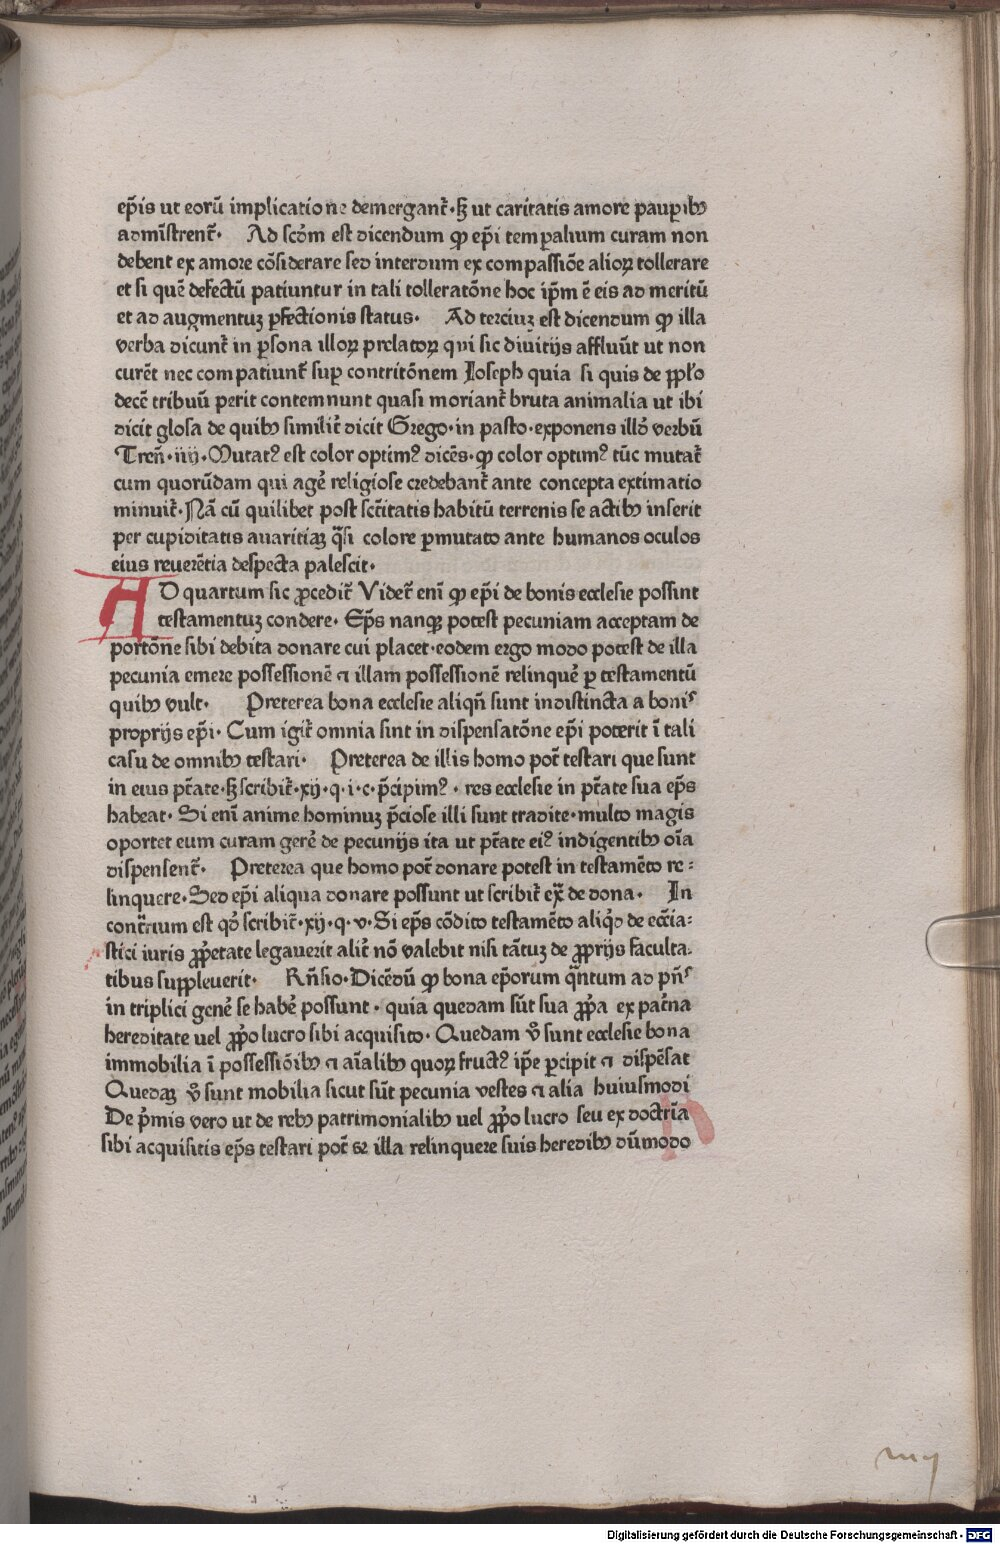 ep̄is ut eorū implicatione demergant᷑·sꝫ ut caritatis amore paupibꝫ
admīstrent᷑· Ad scd̄m est dicendum ꝙ ep̄i temꝑalium curam non
debent ex amore cōsiderare sed interdum ex compassiōe alioꝝ tollerare
et si quē defectū patiuntur in tali tolleratōne hoc ip̄m ē eis ad meritū
et ad augmentuꝫ ꝑfectionis status· Ad terciuꝫ est dicendum ꝙ illa
verba dicunt᷑ in ꝑsona illoꝝ prelatoꝝ qui sic diuitijs affluūt ut non
curēt nec compatiunt᷑ suꝑ contritōnem Ioseph quia si quis de ppl̄o
decē tribuū perit contemnunt quasi moriant᷑ bruta animalia ut ibi
dicit glosa de quibꝫ similit᷑ dicit Grego·in pasto·exponens illd̓ verbū
Tren̄·iiij·Mutatꝰ est color optimꝰ dicēs·ꝙ color optimꝰ tūc mutat᷑
cum quorūdam qui age᷑ religiose credebant᷑ ante concepta extimatio
minuit᷑·Nā cū quilibet post sct̄itatis habitū terrenis se actibꝫ inserit
per cupiditatis auaritiāꝫ qͣsi colore ꝑmutato ante humanos oculos
eius reuerētia despecta palescit·
AD quartum sic ꝓcedit᷑ Videt᷑ enī ꝙ ep̄i de bonis ecclesie possint
testamentuꝫ condere· Ep̄s nanqꝫ potest pecuniam acceptam de
portōne sibi debita donare cui placet·eodem ergo modo potest de illa
pecunia emere possessionē ⁊ illam possessionē relinque᷑ ꝑ testamentū
quibꝫ vult· Preterea bona ecclesie aliqn̄ sunt indistincta a bonis
proprijs ep̄i· Cum igit᷑ omnia sint in dispensatōne ep̄i poterit ī tali
casu de omnibꝫ testari· Preterea de illis homo pot᷑ testari que sunt
in eius pt̄ate·sꝫ scribit᷑·xij·q·i·c·p̄cipimꝰ· res ecclesie in pt̄ate sua ep̄s
habeat· Si enī anime hominuꝫ p̄ciose illi sunt tradite·multo magis
oportet eum curam gere᷑ de pecunijs ita ut pt̄ate eiꝰ indigentibꝫ oīa
dispensent᷑· Preterea que homo pot᷑ donare potest in testamēto re⸗
linquere·Sed ep̄i aliqua donare possunt ut scribit᷑ ex᷑ de dona· In
contͣrium est qd̓ scribit᷑·xij·q·v·Si ep̄s cōdito testamēto aliqd̓ de ecc̄ia⸗
stici iuris ꝓp̓etate legauerit alit᷑ nō valebit nisi tātuꝫ de ꝓprijs faculta⸗
tibus suppleuerit· Rn̄sio·Dicēdū ꝙ bona ep̄orum qͣntum ad pn̄s
in triplici gene᷑ se habe᷑ possunt· quia quedam sūt sua ꝓp̓a ex pat᷑na
hereditate uel ꝓp̓o lucro sibi acquisito· Quedam v̓o sunt ecclesie bona
immobilia ī possessiōibꝫ ⁊ aīalibꝫ quoꝝ fructꝰ ip̄e ꝑcipit ⁊ dispēsat
Quedaꝫ v̓o sunt mobilia sicut sūt pecunia vestes ⁊ alia huiusmodi
De p̓mis vero ut de rebꝫ patrimonialibꝫ uel ꝓp̓o lucro seu ex doctrīa
sibi acquisitis ep̄s testari pot᷑ & illa relinquere suis heredibꝫ dūmodo
Digitalisierung gefördert durch die Deutsche Forschungsgemeinschaft · DFG